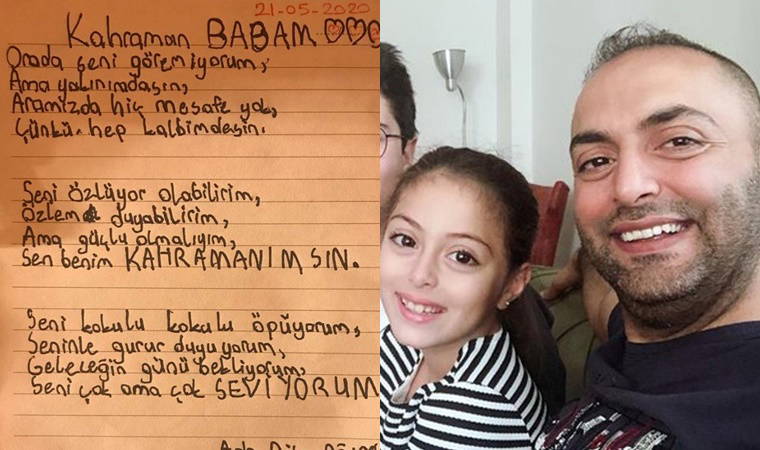 21-05-2020
Kahraman BABAM ♡♡♡
Orada seni göremiyorum,
Ama yakınımdasın,
Aramızda hiç mesafe yok,
Çünkü hep kalbimdesin.
Seni özlüyor olabilirim,
Özlem duyabilirim,
Ama güçlü olmalıyım,
Sen benim KAHRAMANIMSIN.
Seni kokulu kokulu öpüyorum,
Seninle gurur duyuyorum,
Geleceğin günü bekliyorum,
Seni çok ama çok SEVİYORUM